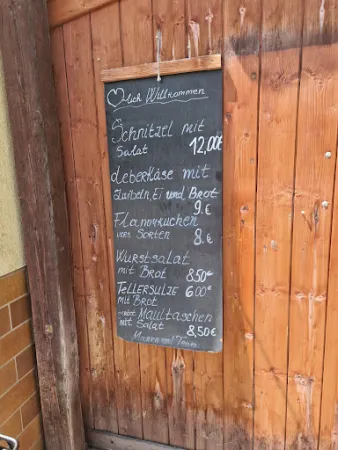 ♡lich Willkommen
Schnitzel mit
Salat 12,00€
Leberkäse mit
Zwibeln, Ei und Brot
9.€
Flammkuchen
vers. Sorten 8.€
Wurstsalat
mit Brot 8.50€
Tellersülze 6.00€
mit Brot
Maultaschen
mit Salat 8,50€